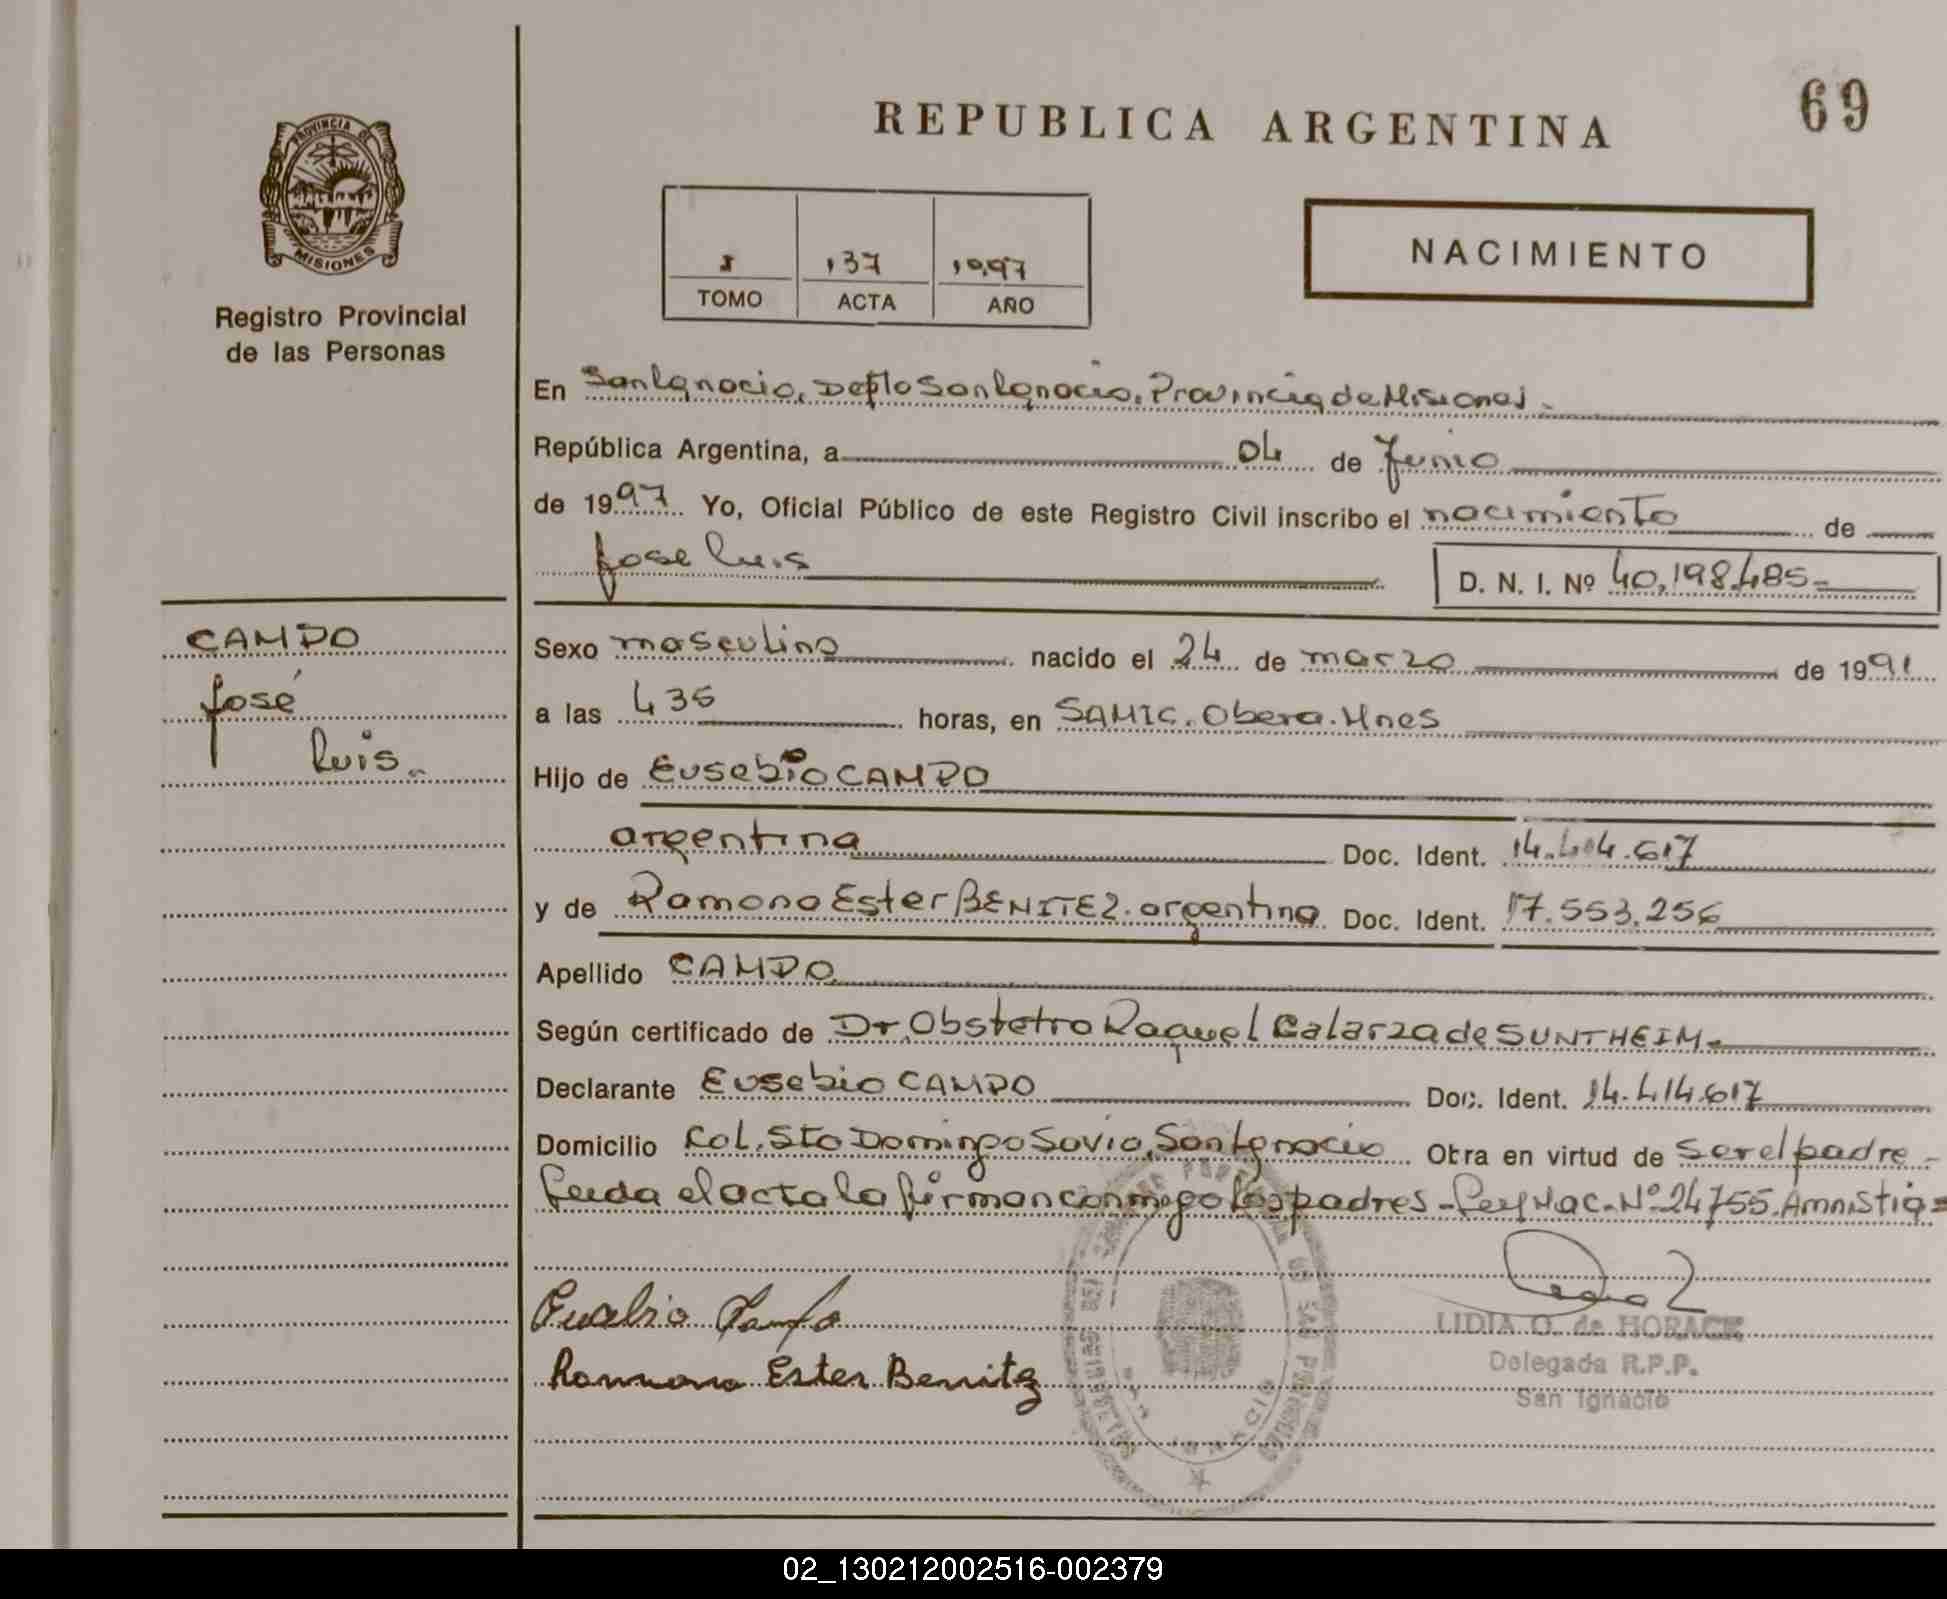 69
REPUBLICA ARGENTINA
PROVINCIA DE
MISIONES
Registro Provincial
de las Personas
NACIMIENTO
137 1997
TOMO ACTA AÑO
En San Ignacio, Depto San Ignacio, Provincia de Misiones.
República Argentina, a 04 de Junio
de 1997 Yo, Oficial Público de este Registro Civil inscribo el nacimiento de
Jose Luis D. N. I. Nº 40,198.485=
CAMPO
José
Luis.
Sexo masculino nacido el 24 de marzo de 1991
a las 4 35 horas, en SAMIC. Obera. Mnes
Hijo de Eusebio CAMPO
argentina Doc. Ident. 14.414.617
y de Ramona Ester BENITEZ. argentina Doc. Ident. 17.553.256
Apellido CAMPO
Según certificado de Dr. Obstetro Raquel Galarza de SUNTHEIM-
Declarante Eusebio CAMPO Doc. Ident. 14.414.617
Domicilio Col. Sto Domingo Savio, San Ignacio Obra en virtud de ser el padre-
Leida el acta la firman conmigo los padres - Ley Nac. Nº 24755. Amnistia=
Eusebio Campo
Ramona Ester Benitez
LIDIA O. de HORACK
Delegada R.P.P.
San Ignacio
02_130212002516-002379